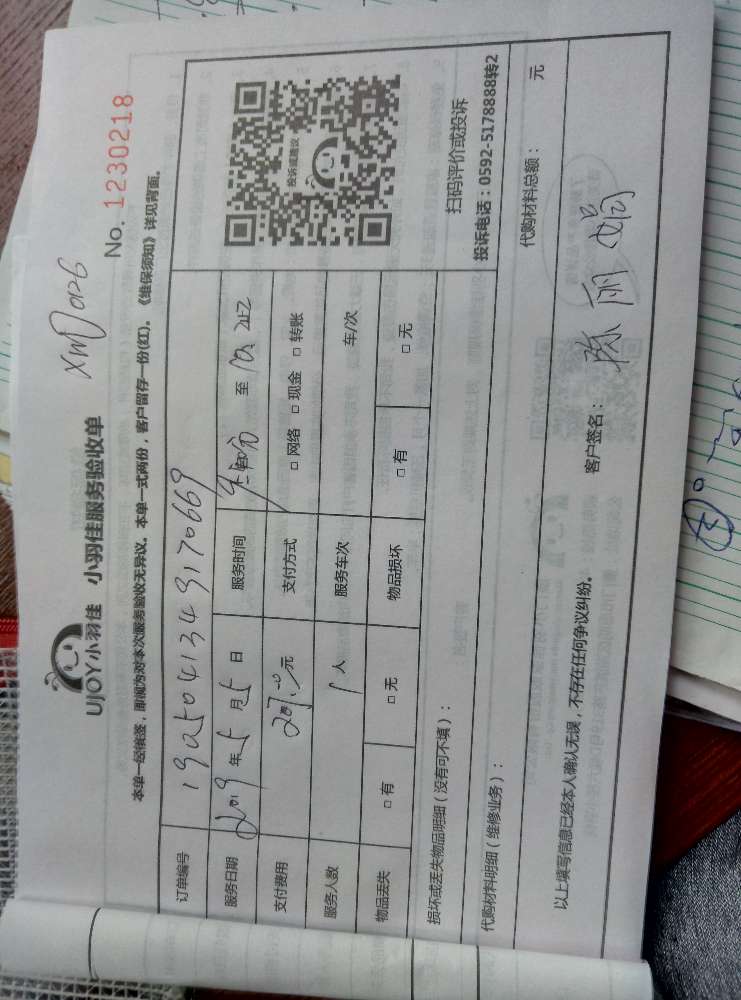 UJOY小羽佳 小羽佳服务验收单
No. 1230218
本单一经编签，即视为对本次服务验收无异议。本单一式两份，客户留存一份(红)。《维保须知》详见背面。
订单编号
服务日期 2019年5月5日 服务时间 至
支付费用 元 支付方式 □ 网络 □ 现金 □ 转账
服务人数 1 人 服务车次 车/次
物品丢失 □ 有 □ 无 物品损坏 □ 有 □ 无
投诉或建议
扫码评价或投诉
投诉电话：0592-5178888转2
损坏或丢失物品明细（没有可不填）：
代购材料明细（维修业务）： 代购材料总额： 元
以上填写信息已经本人确认无误，不存在任何争议纠纷。 客户签名：陈丽娟